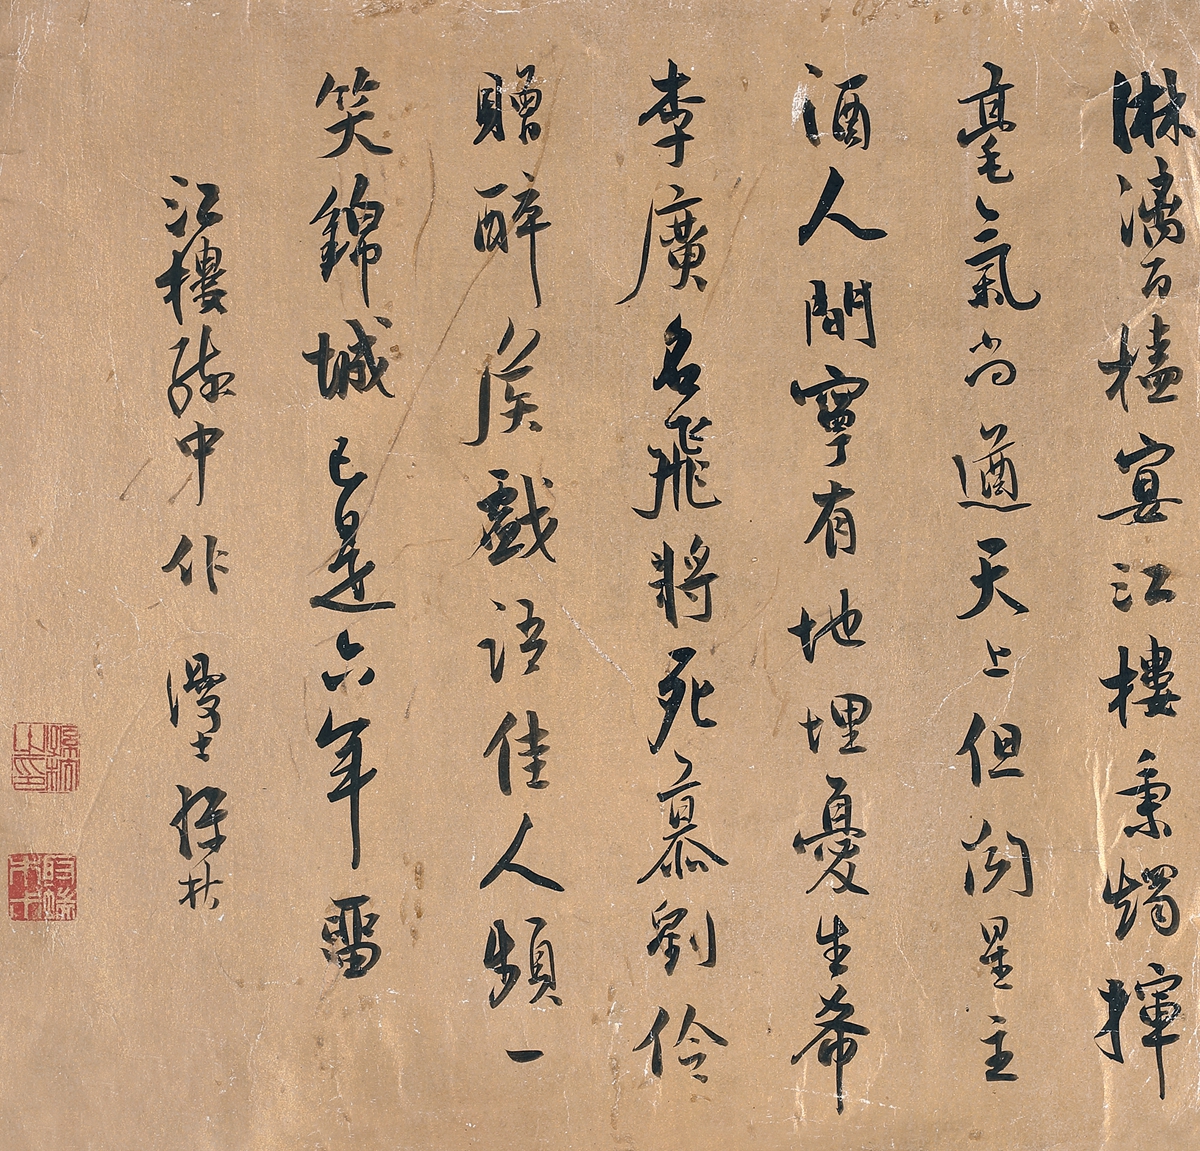 淋漓百榼宴江樓秉燭揮
毫氣尚遒天上但聞星主
酒人間寧有地埋憂生希
李廣名飛將死慕劉伶
贈醉侯戲語佳人頻一
笑錦城已是六年畱
江樓醉中作 漫士孫杕
孫杕之印